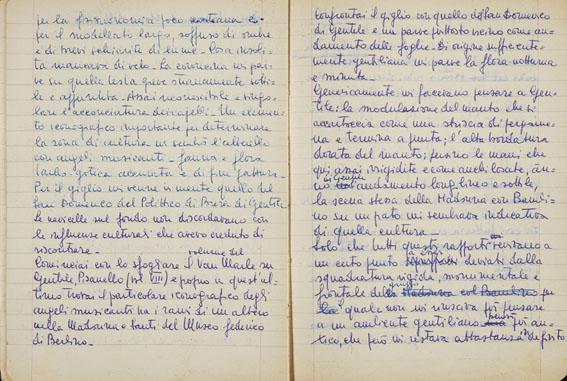 per la fisionomia poco
per il modellato largo, soffuso di ombre
e di brevi schiarite di lume. Cosa insoli-
ta mancava di velo. La coroncina mi par-
ve su quella testa greve stranamente sotti-
le e appuntita. Assai riconoscibile e singo-
lare l'acconciatura dei capelli. Un elemen-
to iconografico importante per determinare
la zona di cultura mi sembrò l'alberello
con angeli musicanti. Fauna e flora
tardo-gotica accurata e di fine fattura.
Per il giglio mi venne in mente quello del
San Domenico del Polittico di Brera di Gentile.
Le navicelle sul fondo non discordavano con
le influenze culturali che avevo creduto di
riscontrare.
Cominciai con lo sfogliare il volume del Van Marle su
Gentile, Pisanello (vol VIII) e proprio in quest'ul-
timo trovai il particolare iconografico degli
angeli musicanti tra i rami di un albero
nella Madonna e Santi del Museo Federico
di Berlino.
Confrontai il giglio con quello del San Domenico
di Gentile e mi parve piuttosto vicino come an-
damento delle foglie. Di origine sufficiente-
mente gentiliana mi parve la flora notturna
e minuta.
Genericamente mi facevano pensare a Gen-
tile: la modulazione del manto che si
accartoccia come una striscia di pergame-
na e termina a punta; l'alta bordatura
dorata del manto; persino le mani che
qui assai irrigidite e come anchilosate, an-
no in genere andamento longilineo e sottile,
la scena stessa della Madonna con Bambi-
no su un prato mi sembrava indicativa
di quella cultura.
Solo che tutti questi rapporti restavano a
un certo punto come deviati dalla
squadratura rigida, monumentale e
frontale del gruppo per
la quale non mi riusciva più pensare
a un ambiente gentiliano più an-
tico, che però mi restava abbastanza indefinito